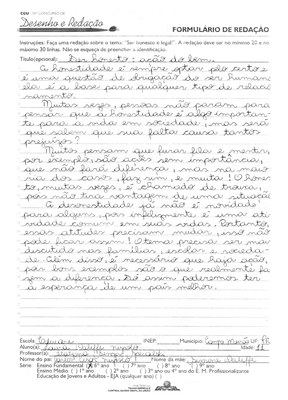 CGU 10º CONCURSO DE
Desenho e Redação
FORMULÁRIO DE REDAÇÃO
Instruções: Faça uma redação sobre o tema: "Ser honesto é legal". A redação deve ser no mínimo 20 e no
máximo 30 linhas. Não se esqueça de preencher a identificação.
Título(opcional): Ser honesto: ação do bem
A honestidade é sempre optar pelo certo e
é uma questão de obrigação do ser humano
ela é a base para qualquer tipo de relacio-
namento.
Muitas vezes, pessoas não param para
pensar que a honestidade é algo importan-
te para a vida em sociedade, mas será
que sabem que sua falta causa tantos
prejuízos?
Muitos pensam que furar fila e mentir,
por exemplo, são ações sem importância,
que não fará diferença, mas na maio-
ria dos casos, faz sim, e muita! O hones-
to, muitas vezes, é chamado de trouxa,
por não tira vantagem de uma situação
A desonestidade já não é novidade
para alguns, pois infelizmente é uma ati-
vidade comum em suas vidas. Portanto,
essas atitudes precisam mudar, isso não
pode ficar assim! O tema precisa ser mais
discutido nas famílias, escolas e socieda-
de. Além disso, é necessário que haja ação,
pois bons exemplos são o que realmente fa-
zem a diferença. Só assim poderemos ter
a esperança de um país melhor.
Escola INEP Município: Campo Mourão UF: PR
Aluno(a): Idade: 11
Professor(a):
Nome do pai: Nome da mãe:
Série: Ensino Fundamental
Ensino Médio ( ) 1º ano ( ) 2º ano ( ) 3º ano ou 4º ano do E. M. Profissionalizante
Educação de Jovens e Adultos - EJA (qualquer ano) ( )